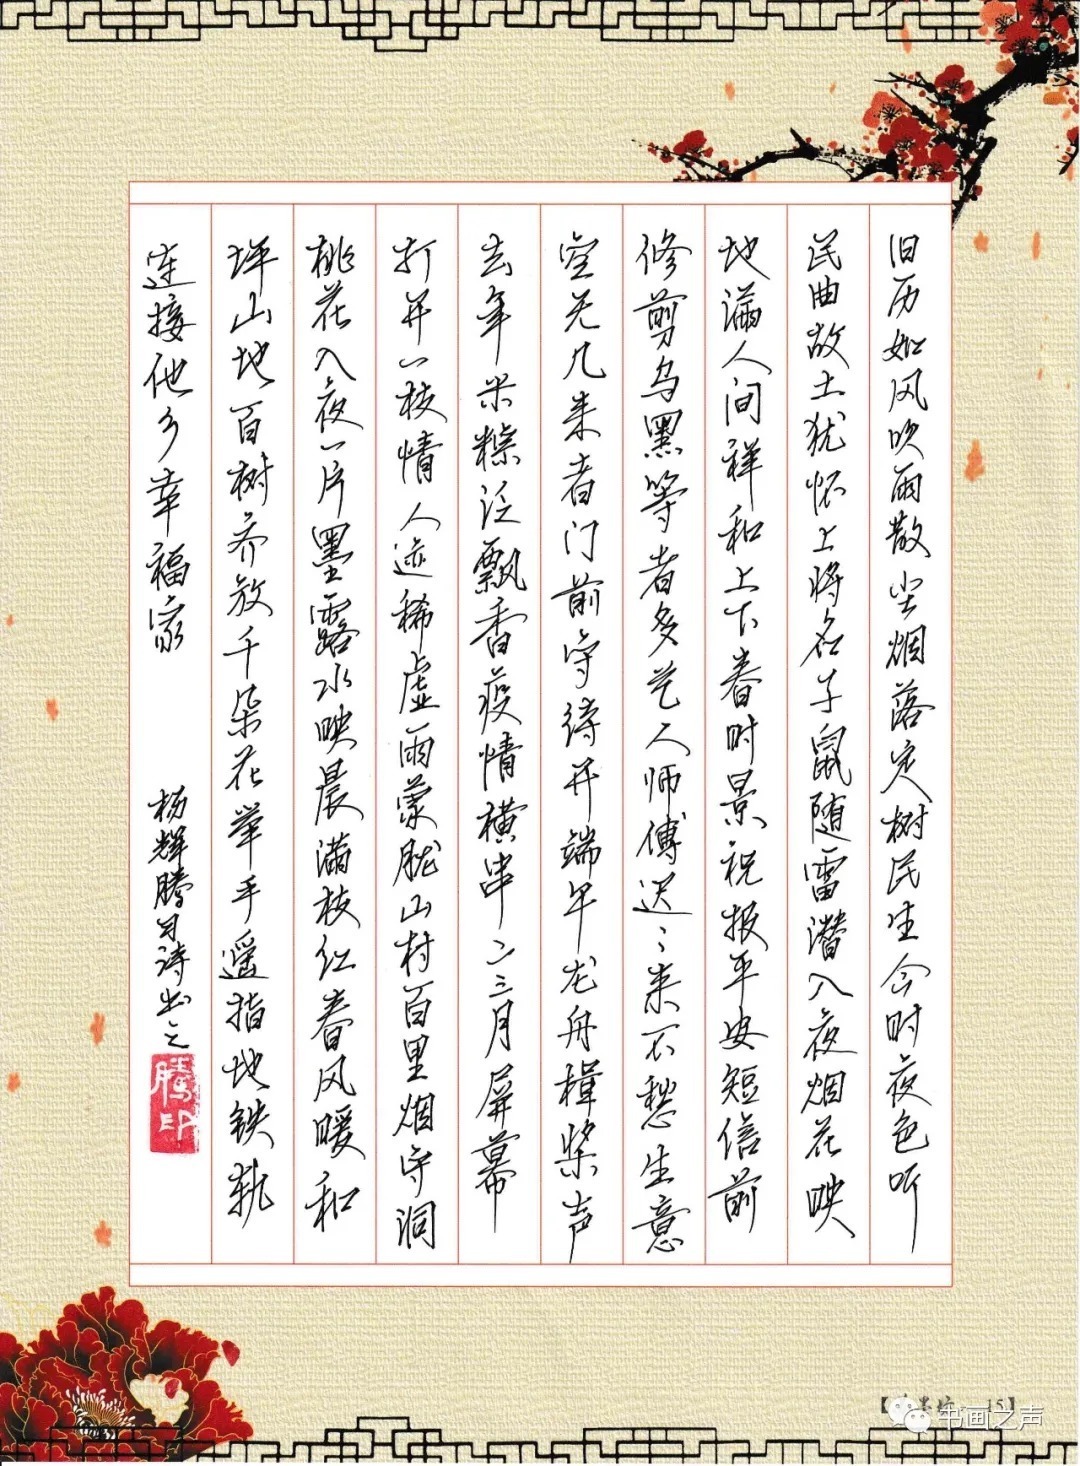 旧历如风吹雨散尘烟落定树民生今时夜色听
民曲故土犹怀上将名子鼠随雷潜入夜烟花映
地满人间祥和上下春时景祝报平安短信前
修剪乌黑等者多艺人师傅迟〻来不愁生意
室无几来者门前守待开端午龙舟楫桨声
去年米粽泛飘香疫情横串二三月屏幕
打开一枝情人迹稀虚雨蒙胧山村百里烟守洞
桃花入夜一片墨露水映晨满枝红春风暖和
坪山地百树齐放千朵花举手遥指地铁轨
连接他乡幸福家
杨辉腾自诗书之
腾印
墨 15】
书画之声